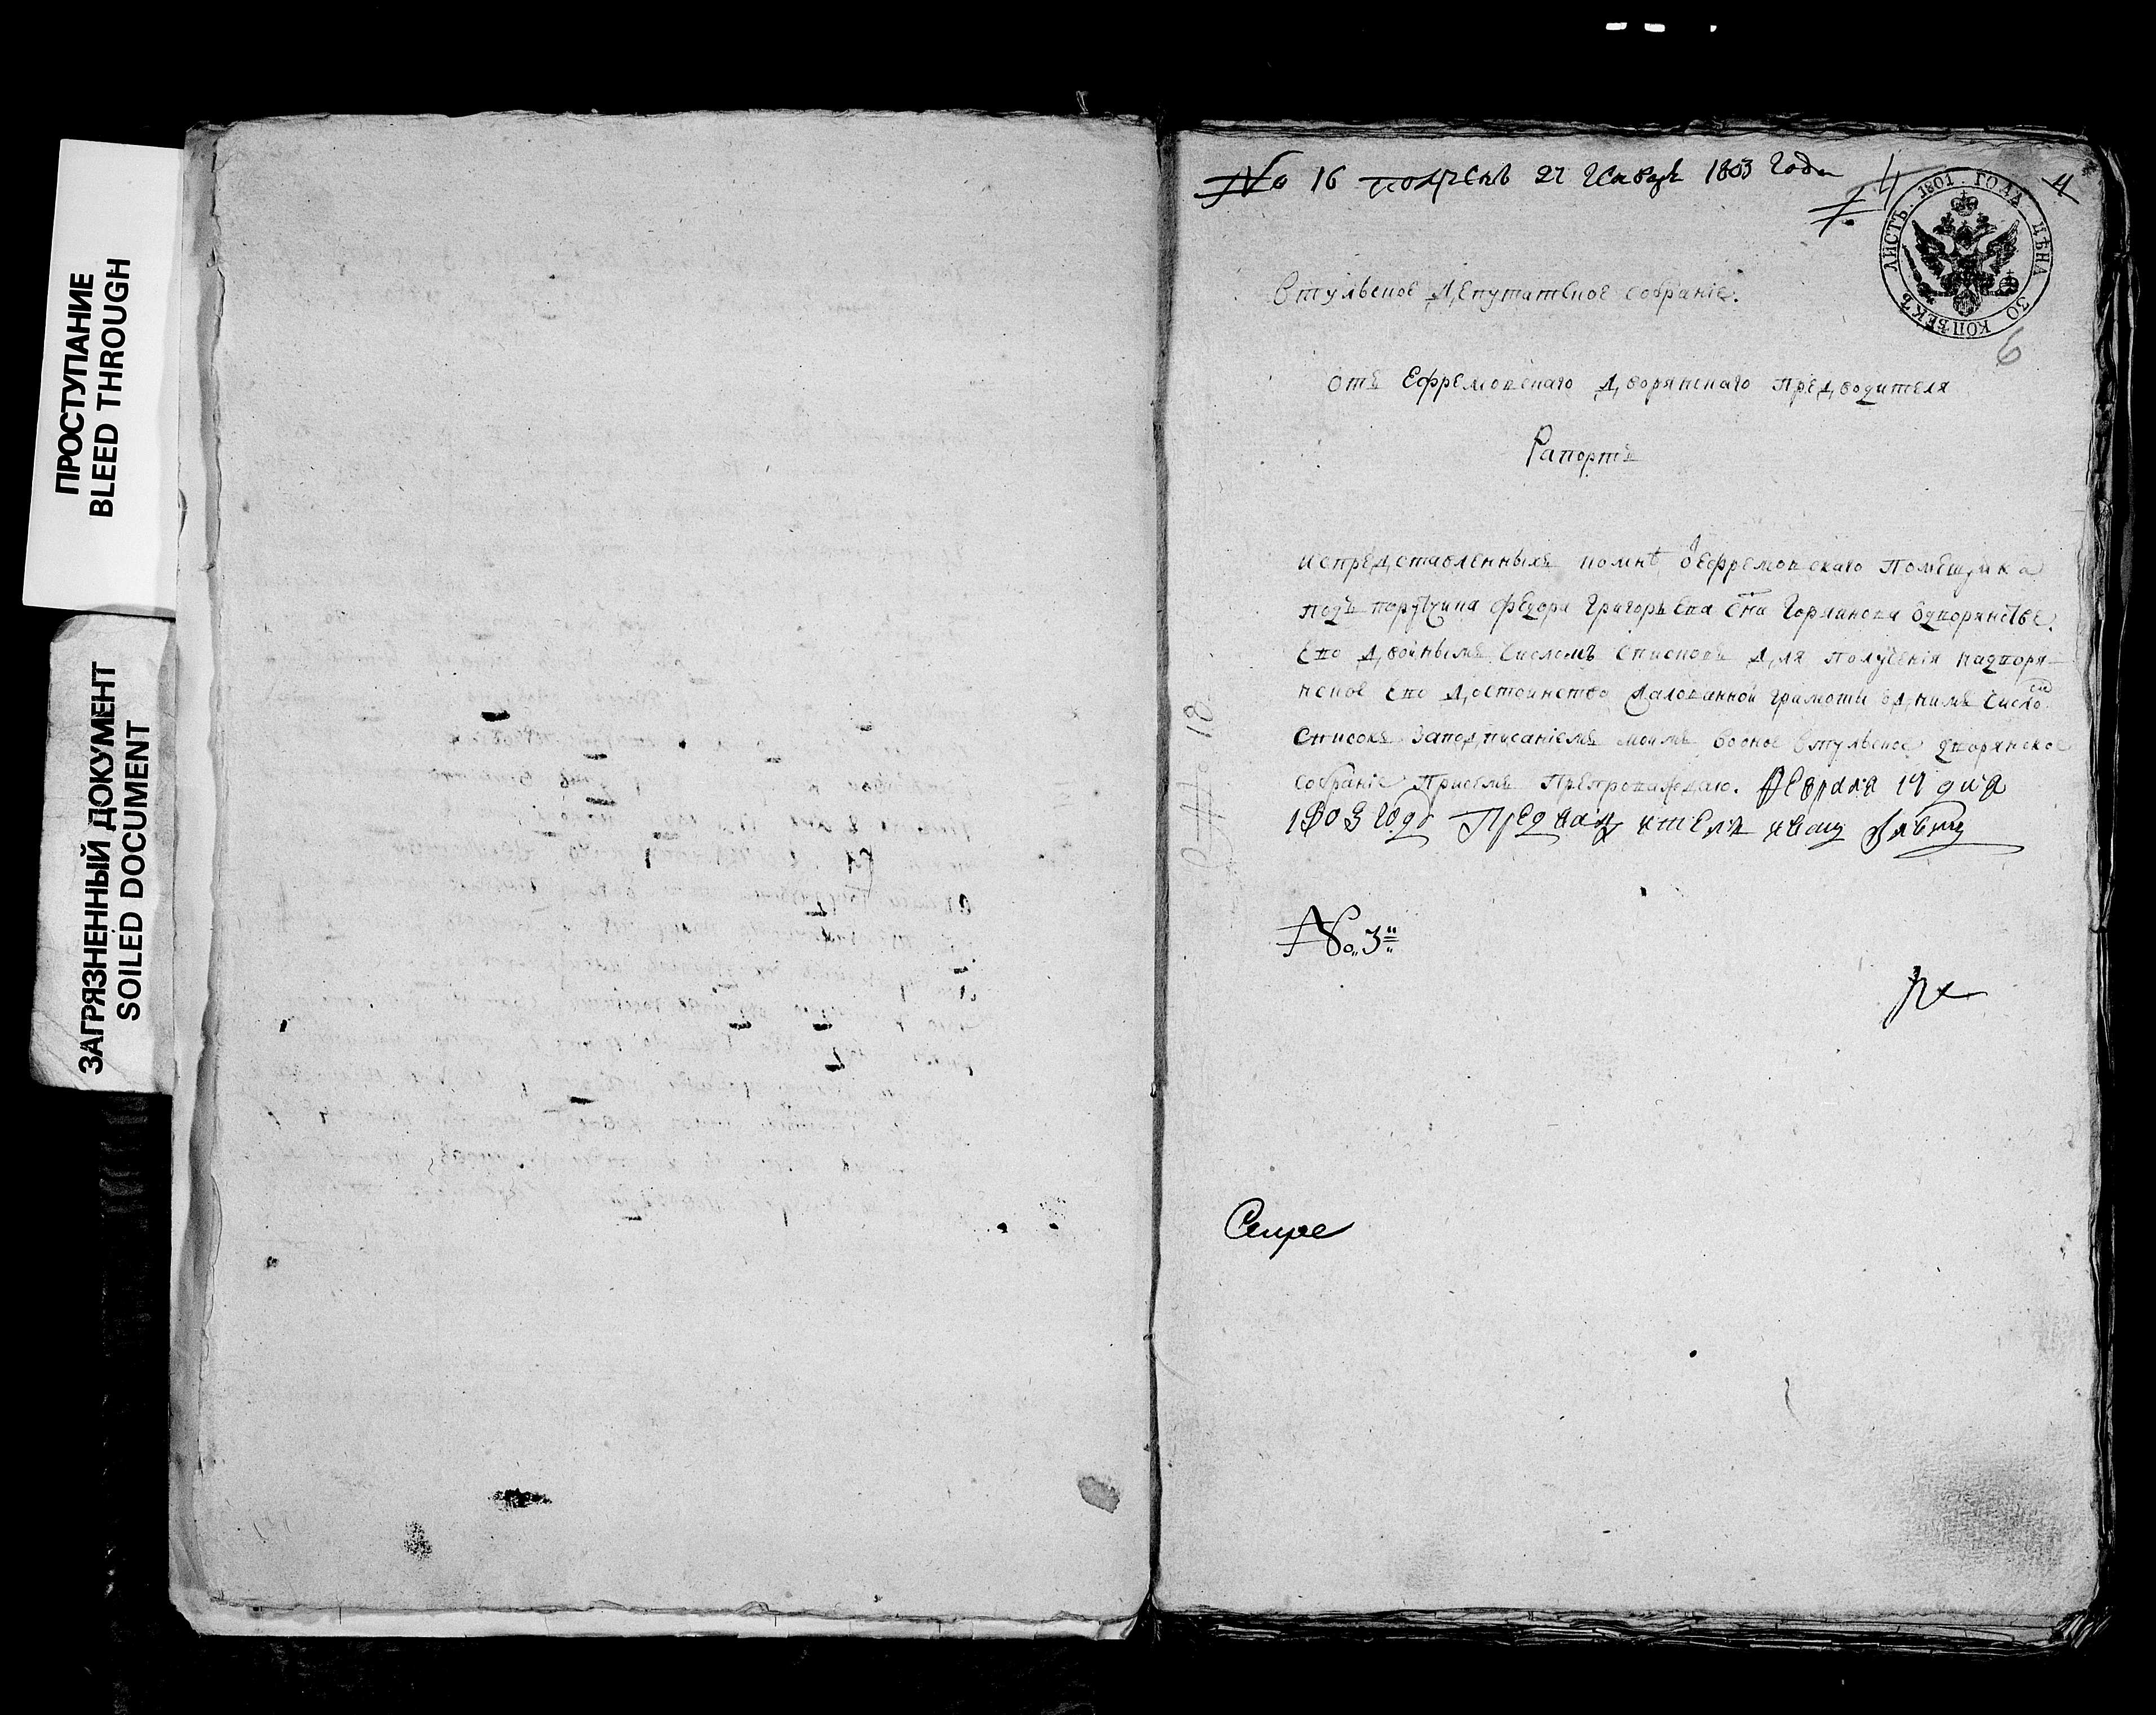 ПРОСТУПАНИЕ
BLEED THROUGH
ЗАГРЯЗНЕННЫЙ ДОКУМЕНТ
SOILED DOCUMENT
№ 16 1803 года
4
4
ЛИСТЪ 1801 ГОДА ЦѢНА 30 КОПѢЕКЪ
6
Втульское Депутатское собраніе.
отъ Ефремовскаго дворянскаго предводителя
Рапортъ
испредставленныхъ комнѣ оефремовскаго помещика
подъ порутчика Федора Григорьева сна Горлинова одворянстве
ево двойнымъ числомъ списковъ для полученія надворян
ское ево достоинство жалованной грамоты однимъ число
мъ
списокъ заподписаніемъ моимъ вооное втульское дворянское
собраніе присемъ препровождаю. Февраля 14 дня
1803 году
№ 3
18
Секре